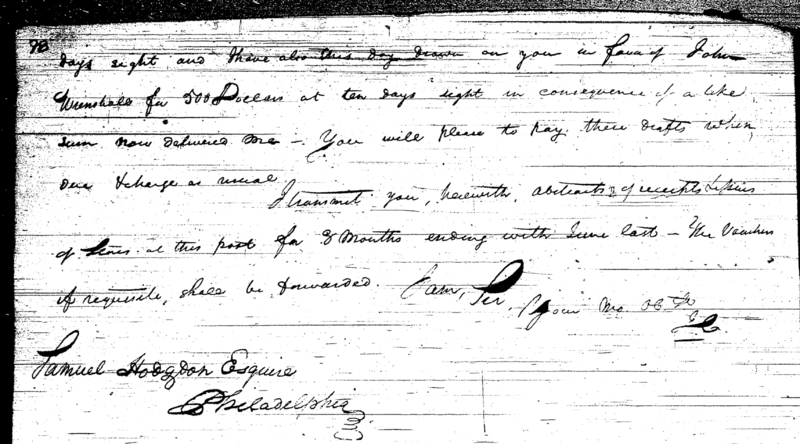 98
days sight and I have also this day drawn on you in favor of John
Wrenshall for 500 Dollars at ten days sight in consequence of a like
sum now delivered me - You will please to pay these drafts when
due & charge as usual
I transmit you, herewith, abstracts of receipts & Issues
of Stores at this post for 3 Months ending with June last - The Vouchers
if requisite, shall be forwarded. I am, Sir,
Your Mo Ob Sr
Samuel Hodgdon Esquire
Philadelphia